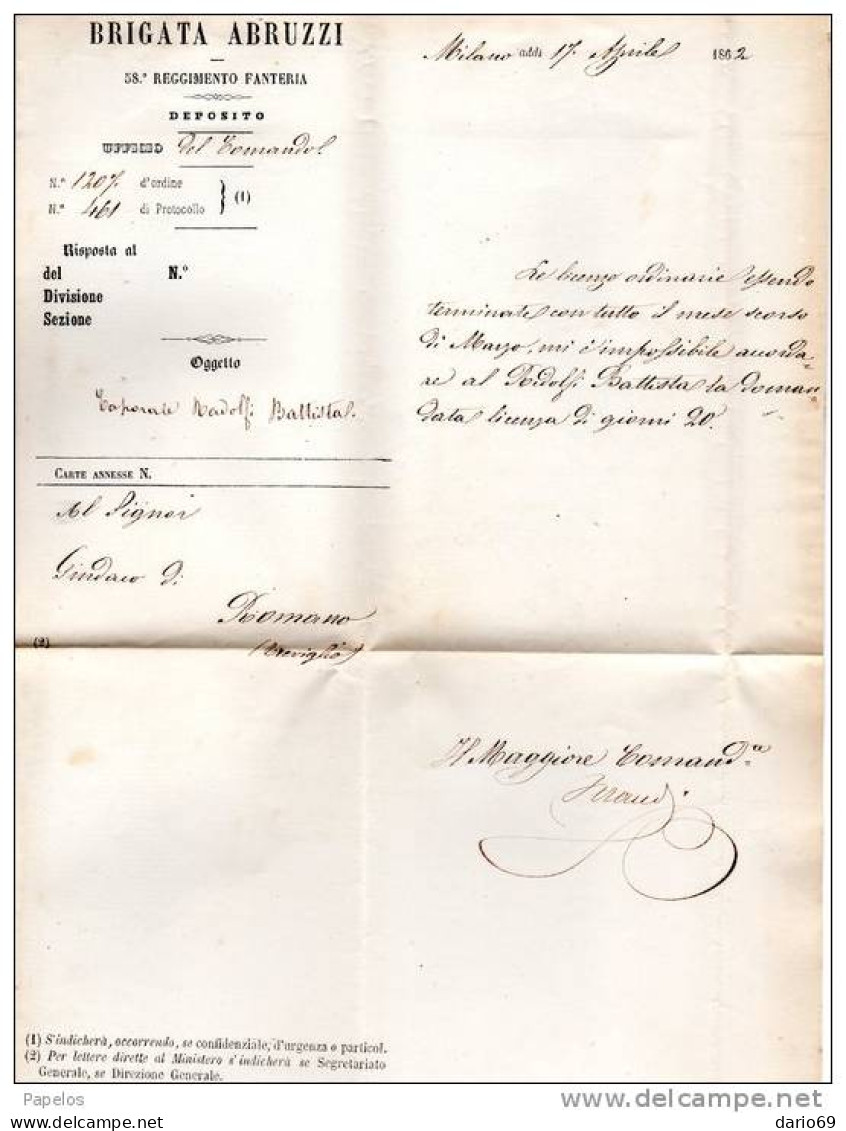 BRIGATA ABRUZZI
58.º REGGIMENTO FANTERIA
DEPOSITO
UFFIZIO del Comando
N.º 1207 d'ordine
N.º 461 di Protocollo } (1)
Risposta al
del N.º
Divisione
Sezione
Oggetto
Caporale Radolfi Battista.
CARTE ANNESSE N.
Al Signor
Sindaco di
Romano
(Treviglio)
(2)
Milano addì 17 Aprile 1862
Le licenze ordinarie essendo
terminate con tutto il mese scorso
di Marzo, mi è impossibile accorda-
re al Ridolfi Battista la doman-
data licenza di giorni 20.
Il Maggiore Comand.te
(1) S'indicherà, occorrendo, se confidenziale, d'urgenza o particol.
(2) Per lettere dirette al Ministero s'indicherà se Segretariato
Generale, se Direzione Generale.
Papelos
delcampe.net
dario69